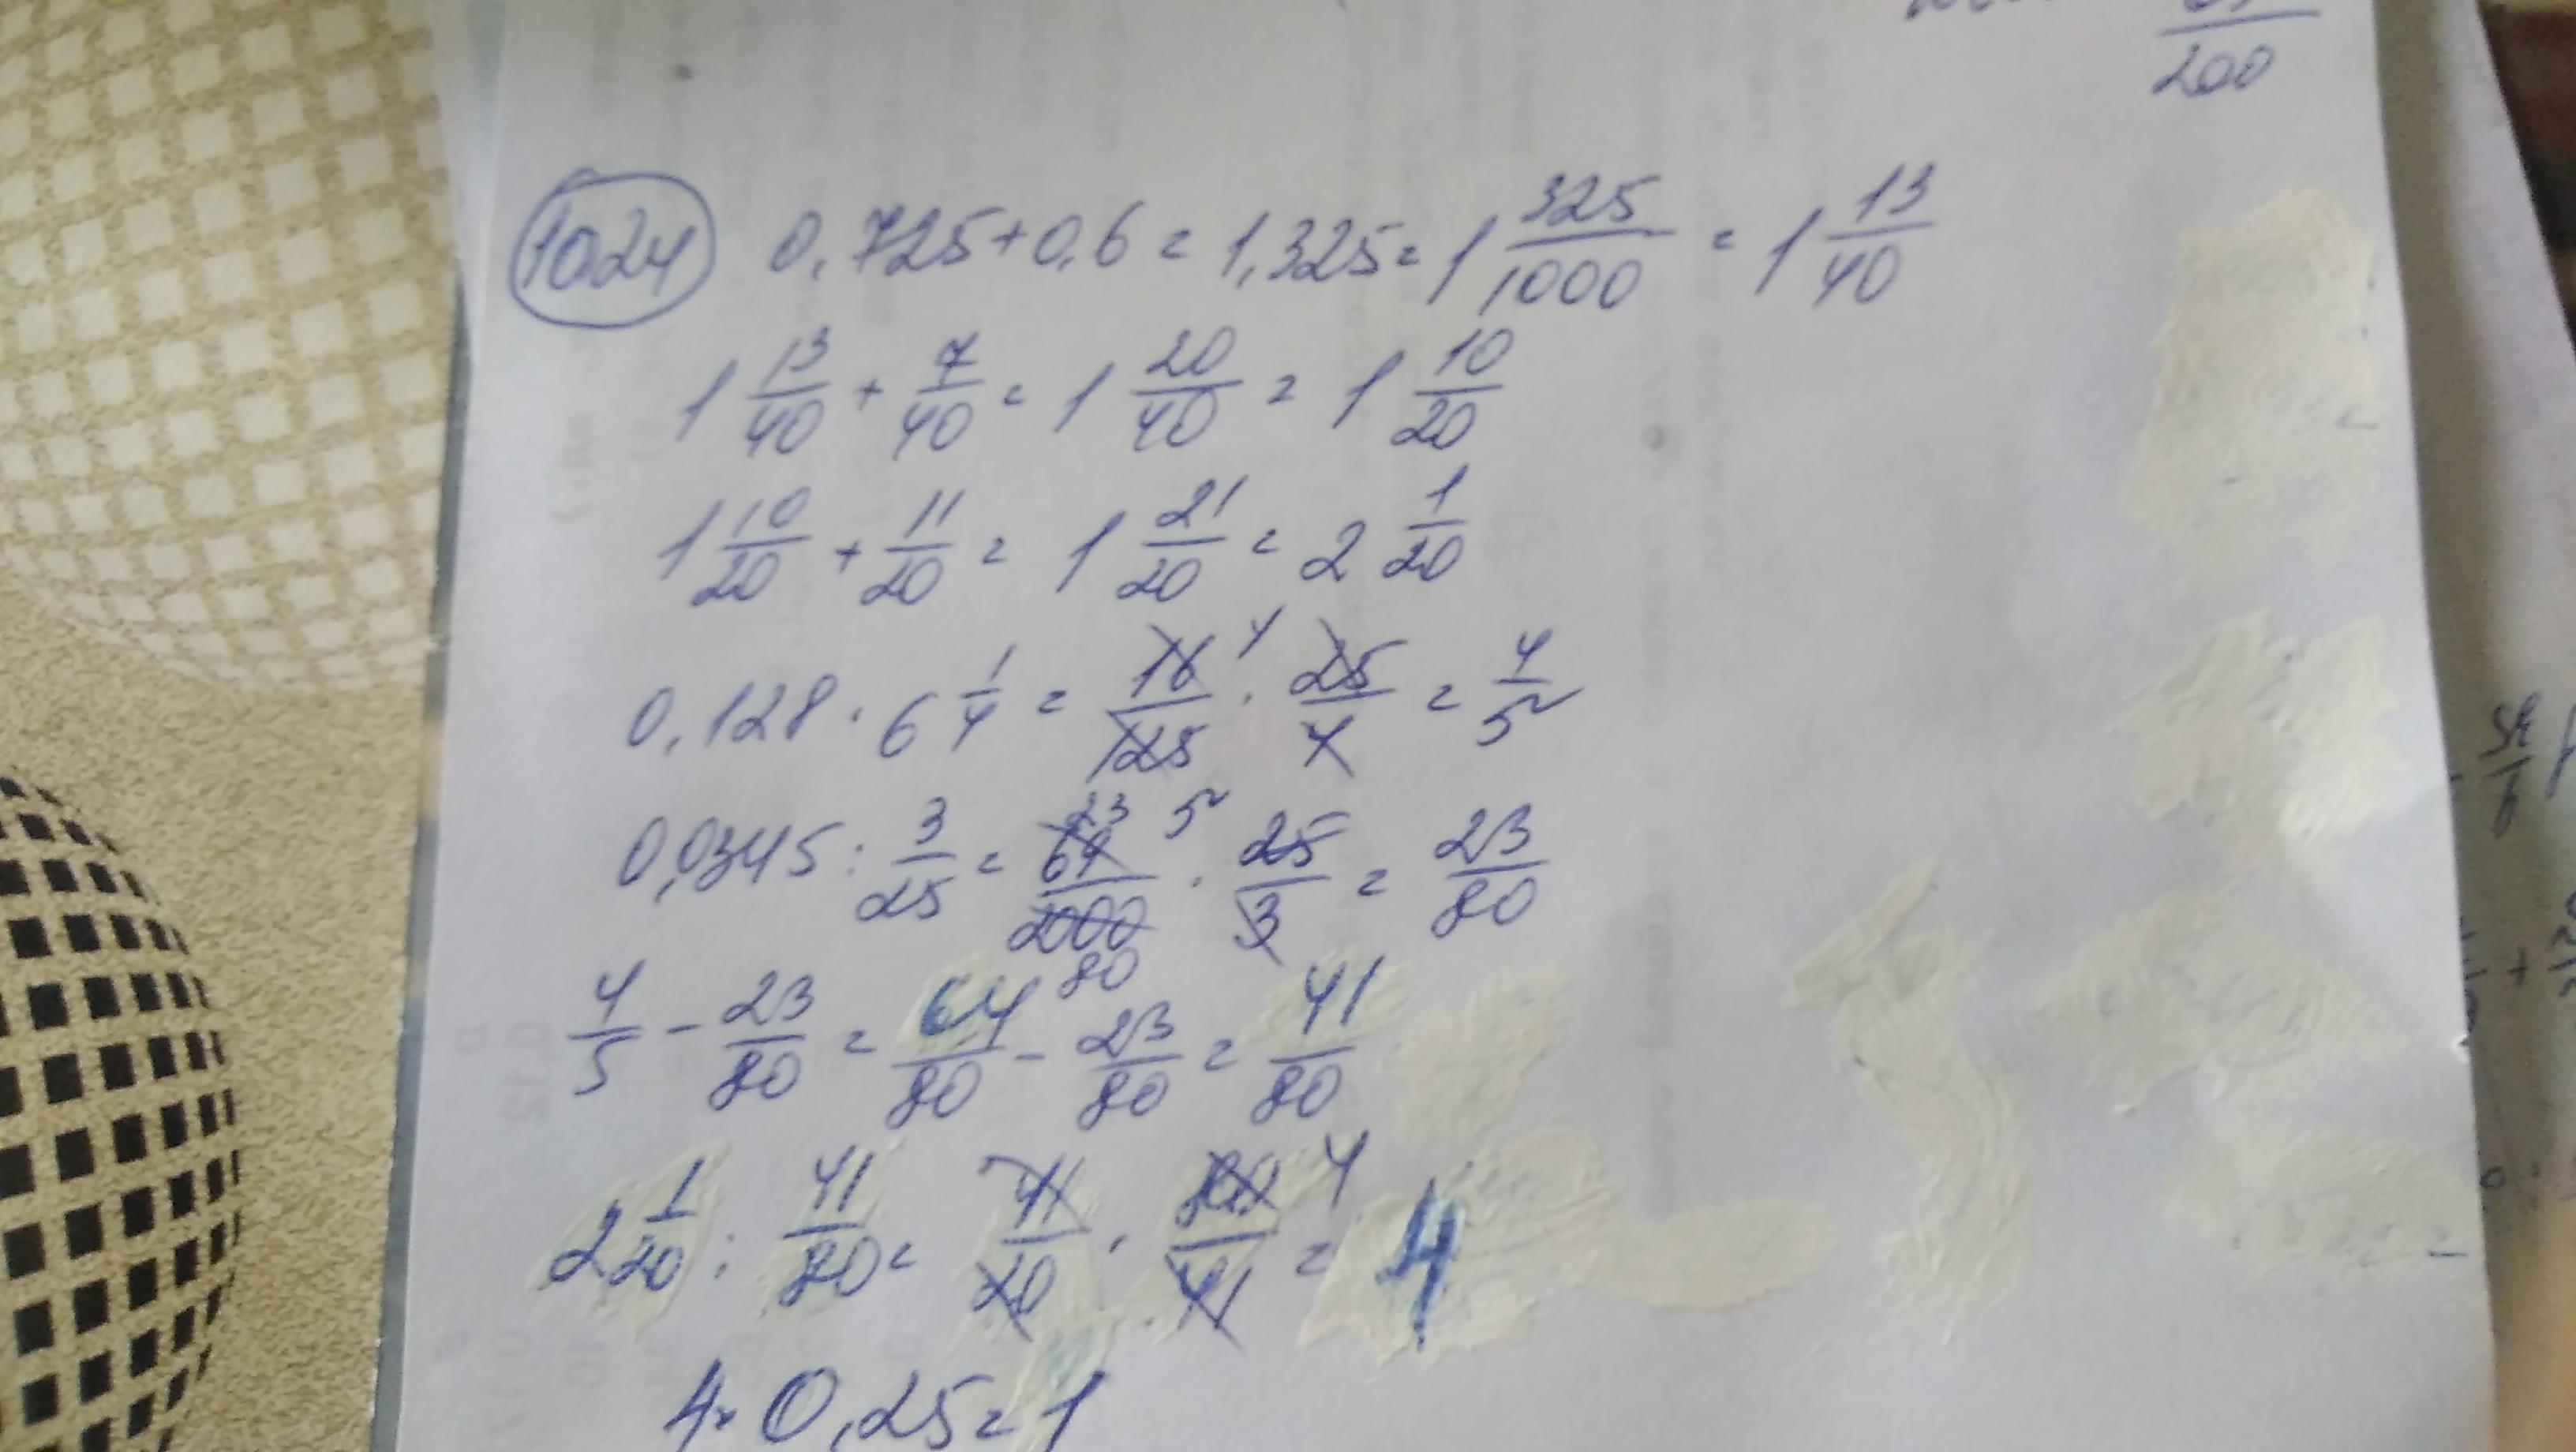 200
1024 0,725+0,6=1,325=1 325/1000 = 1 13/40
1 13/40 + 7/40 = 1 20/40 = 1 10/20
1 10/20 + 11/20 = 1 21/20 = 2 1/20
0,128 · 6 1/4 = 16/125 4 · 25/4 = 4/5
5
0,0345 : 3/25 = 69/2000 23 · 25/3 = 23/80
80
4/5 - 23/80 = 64/80 - 23/80 = 41/80
2 1/20 : 41/80 = 41/20 · 80/41 4 = 4
4 · 0,25 = 1